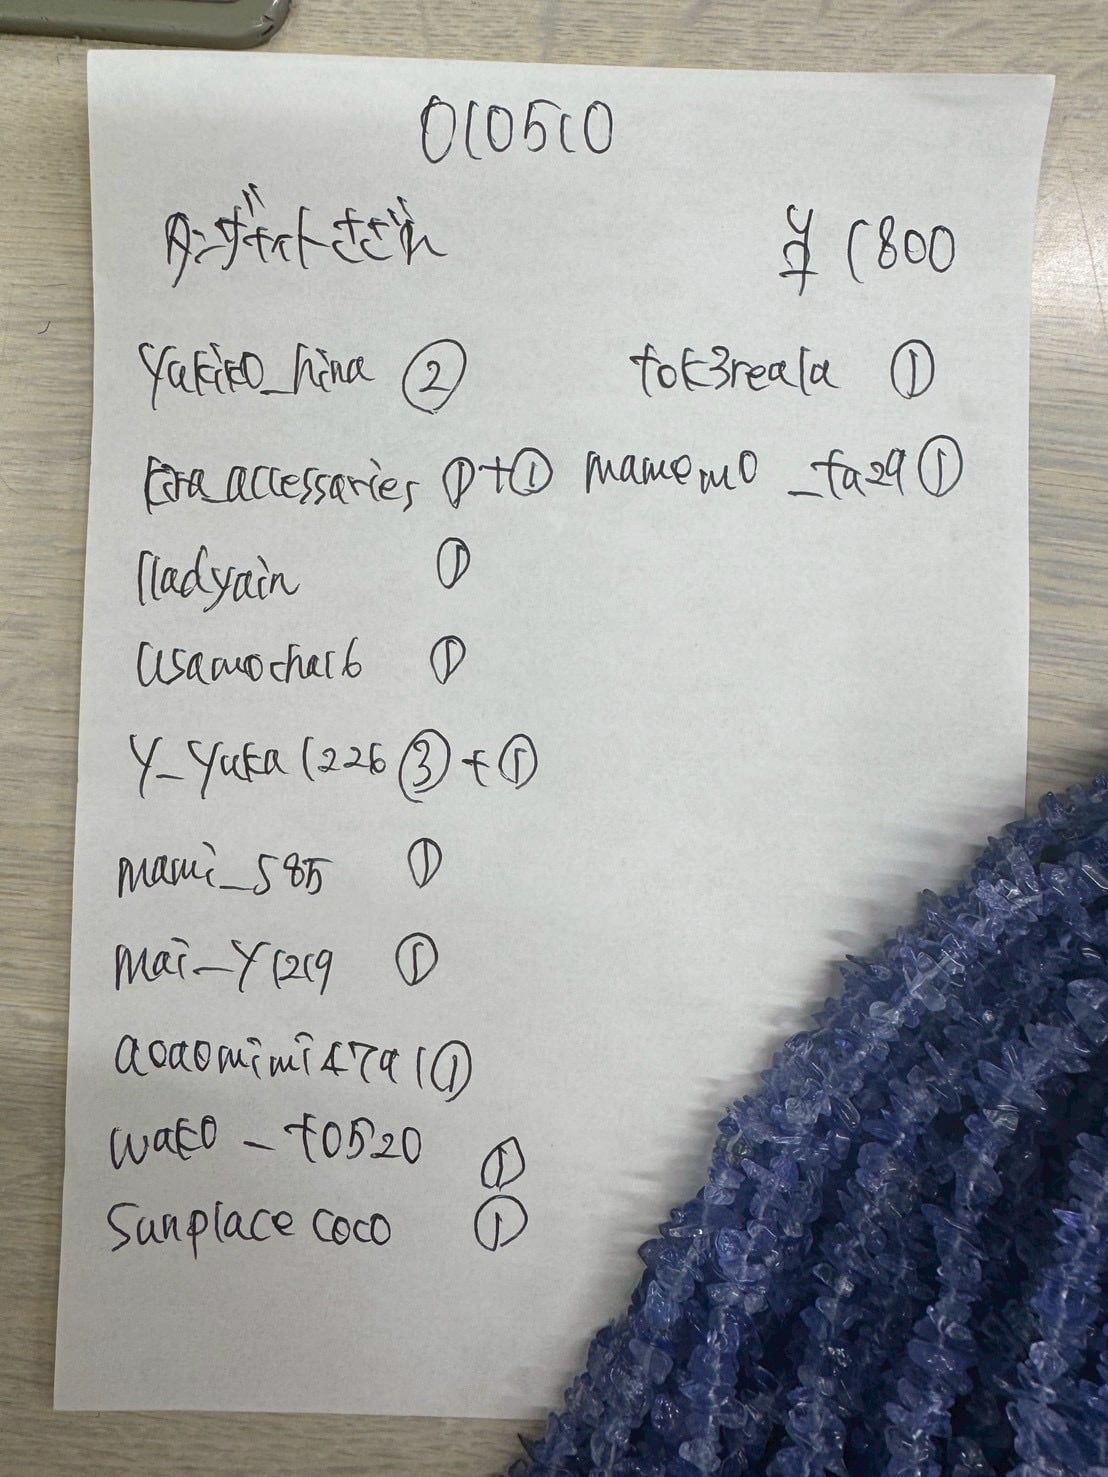 010510
タンザナイトさざれ ¥1800
yukiko_hina ② tok3reala ①
kira_accessaries ①+① mamemo_ta29 ①
lladyain ①
usamocha16 ①
y_yuka1226 ③+①
mami_585 ①
mai_y1219 ①
aoaomimi4791 ①
wako_t0520 ①
sunplace coco ①